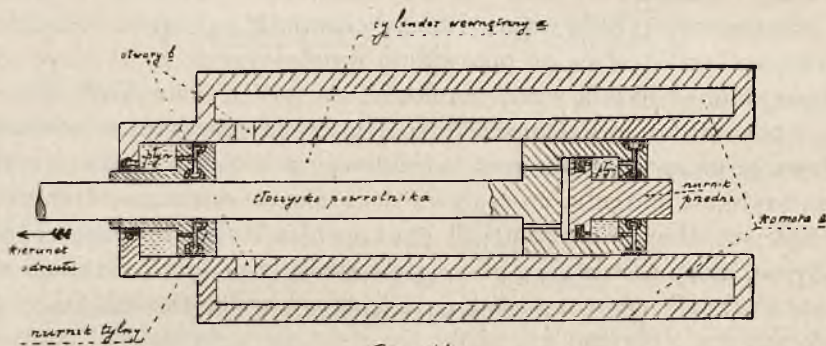 cylinder wewnętrzny a
otwory b
tłoczysko powrotnika
nurnik
przedni
komora a
kierunek
odrzutu
nurnik tylny